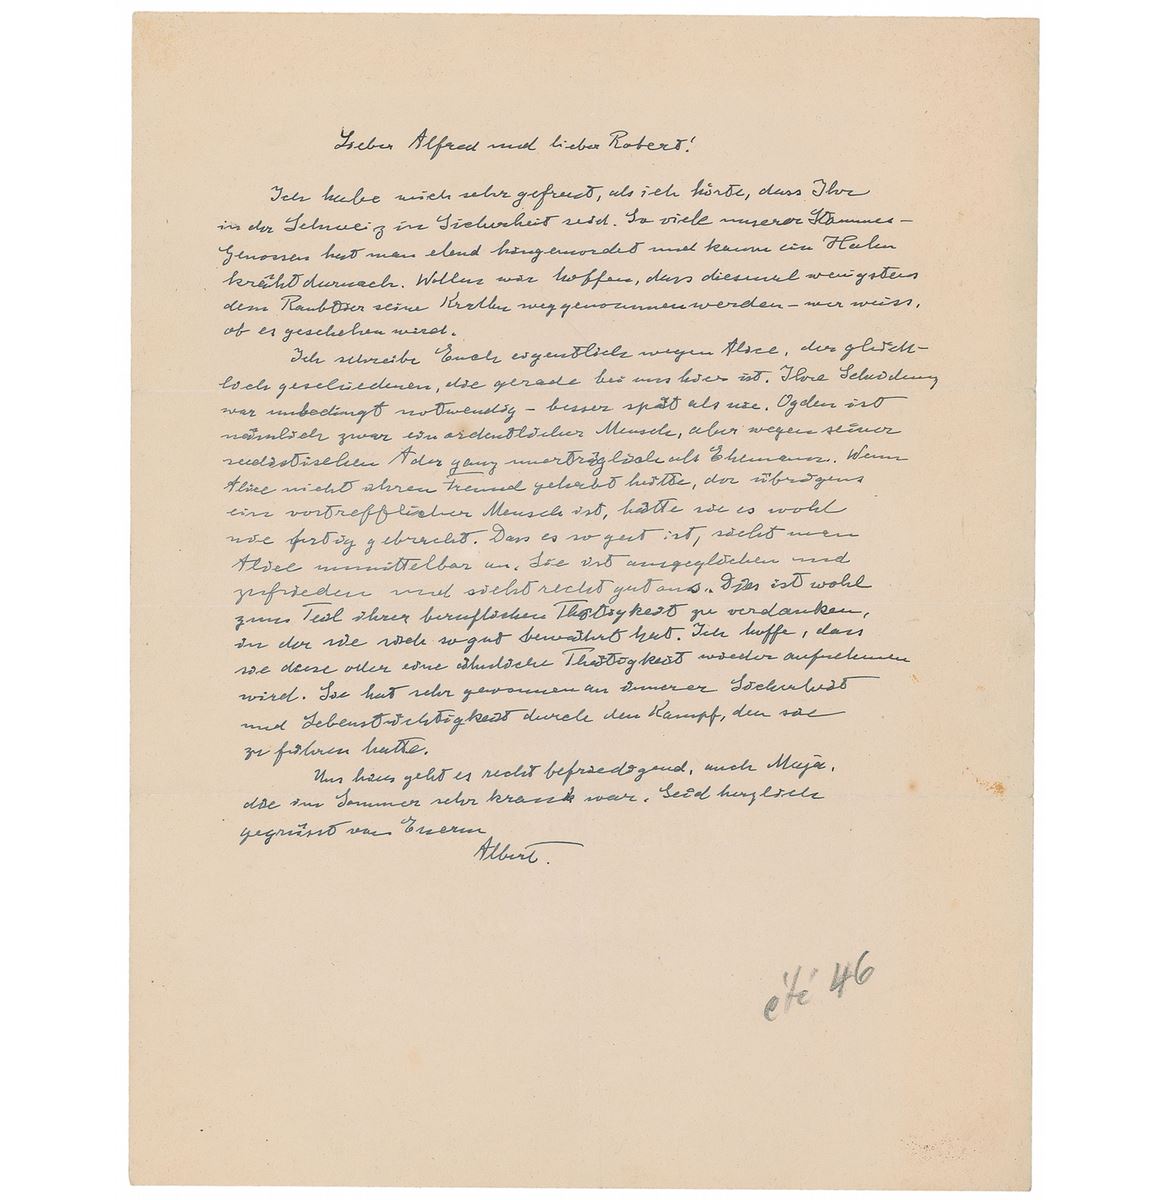 Lieber Alfred und lieber Robert!
Ich habe mich sehr gefreut, als ich hörte, dass Ihr
in der Schweiz in Sicherheit seid. So viele unserer Stammes-
Genossen hat man elend hingemordet und kaum ein Hahn
kräht darnach. Wollen wir hoffen, dass diesmal wenigstens
dem Raubtier seine Krallen weggenommen werden – wer weiss,
ob es geschehen wird.
Ich schreibe Euch eigentlich wegen Alice, der glück-
lich geschiedenen, die gerade bei uns hier ist. Ihre Scheidung
war unbedingt notwendig – besser spät als nie. Ogden ist
nämlich zwar ein ordentlicher Mensch, aber wegen seiner
sadistischen Ader ganz unerträglich als Ehemann. Wenn
Alice nicht ihren Freund gehabt hätte, der übrigens
ein vortrefflicher Mensch ist, hätte sie es wohl
nie fertig gebracht. Dass es so gut ist, sieht man
Alice unmittelbar an. Sie ist ausgeglichen und
zufrieden und sieht recht gut aus. Dies ist wohl
zum Teil ihrer beruflichen Thätigkeit zu verdanken,
in der sie sich so gut bewährt hat. Ich hoffe, dass
sie diese oder eine ähnliche Thätigkeit wieder aufnehmen
wird. Sie hat sehr gewonnen an innerer Sicherheit
und Lebenstüchtigkeit durch den Kampf, den sie
zu führen hatte.
Uns hier geht es recht befriedigend, auch Maja,
die im Sommer sehr krank war. Seid herzlich
gegrüsst von Euerm
Albert.
été 46